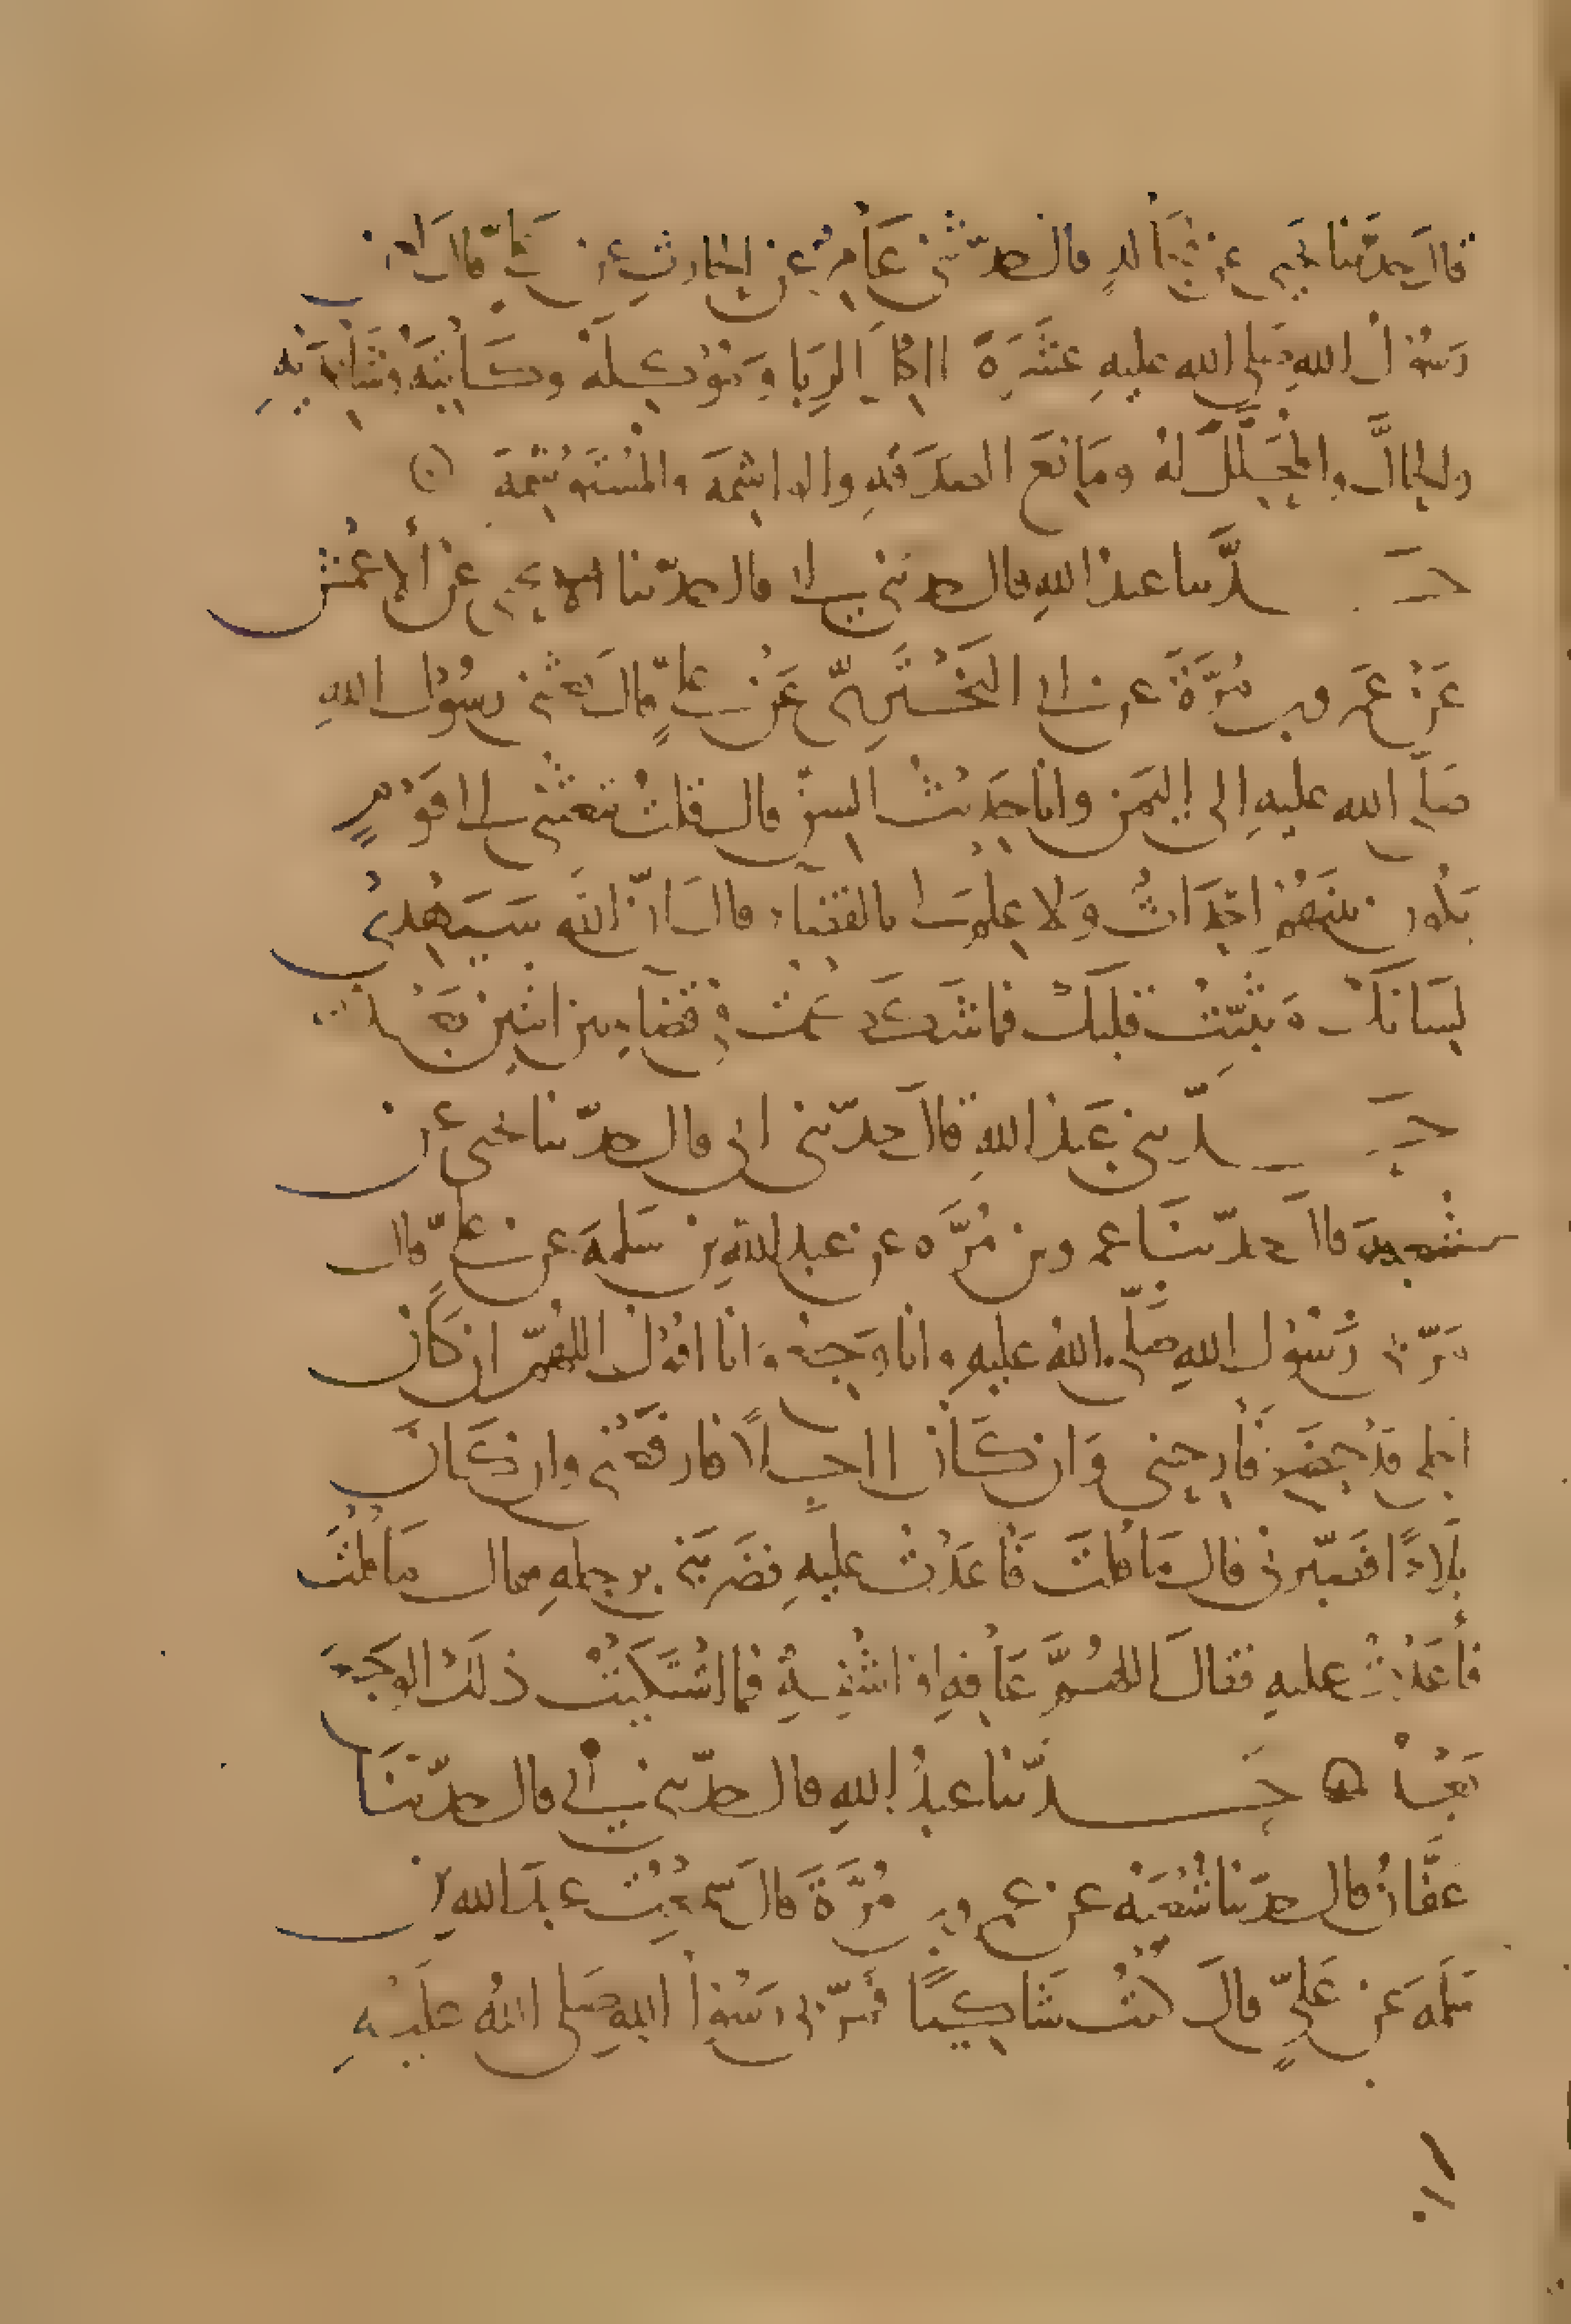 قال حدثنا يحيى عن مجالد قال حدثني عامر عن الحارث عن علي قال لعن
رسول الله صلى الله عليه عشرة اكل الربا وموكله وكاتبه وشاهديه
والحال والمحلل له ومانع الصدقه والواشمة والمستوشمة
حدثنا عبد الله قال حدثني ابي قال حدثنا يحيى عن الأعمش
عن عمرو بن مرة عن ابي البختري عن علي قال بعثني رسول الله
صلى الله عليه الى اليمن وانا حديث السن قال قلت تبعثني الى قوم
يكون بينهم احداث ولا علم لي بالقضاء قال ان الله سيهدي
لسانك ويثبت قلبك فما شككت في قضاء بين اثنين بعد
حدثني عبد الله قال حدثني ابي قال حدثنا يحيى عن
شعبة قال حدثنا عمرو بن مره عن عبد الله بن سلمة عن علي قال
مر بي رسول الله صلى الله عليه وانا وجع وانا اقول اللهم ان كان
اجلي قد حضر فارحني وان كان اجلا فارفعني وان كان
بلاء فصبرني قال ما قلت فاعدت عليه فضربني برجله فقال ما قلت
فأعدت عليه فقال اللهم عافه او اشفه فما اشتكيت ذلك الوجع
بعد ه حدثنا عبد الله قال حدثني أبي قال حدثنا
عفان قال حدثنا شعبه عن عمرو بن مرة قال سمعت عبد الله بن
سلمه عن علي قال كنت شاكيا فمر بي رسول الله صلى الله عليه